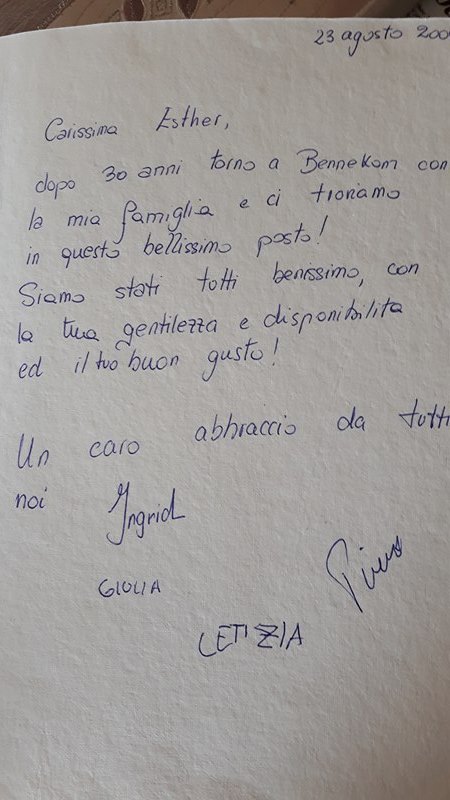 23 agosto 200
Carissima Esther,
dopo 30 anni torno a Bennekom con
la mia famiglia e ci troviamo
in questo bellissimo posto!
Siamo stati tutti benissimo, con
la tua gentilezza e disponibilita
ed il tuo buon gusto!
Un caro abbraccio da tutti
noi Ingrid
GIULIA
LETIZIA